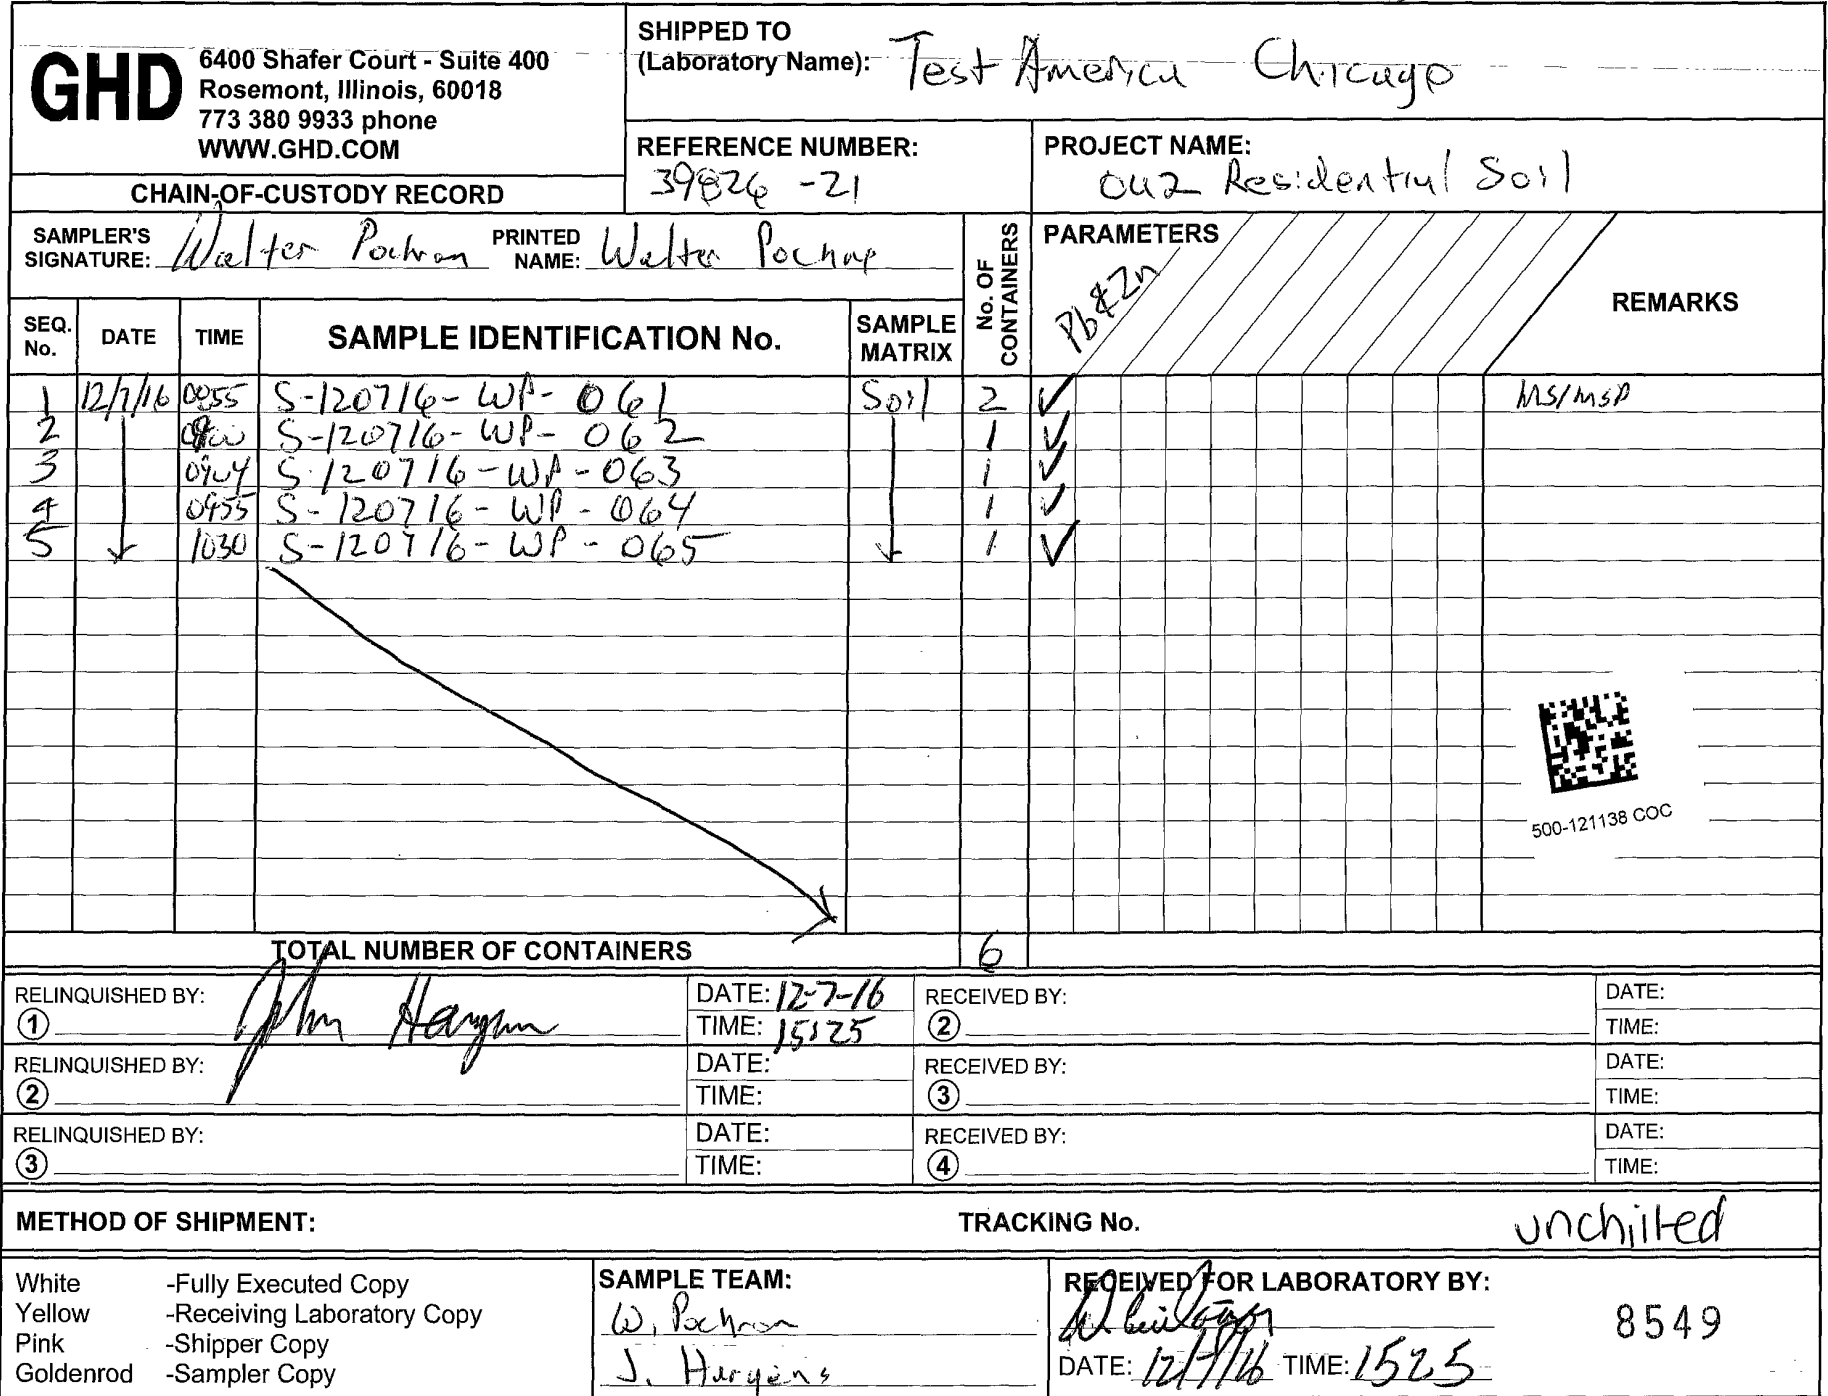 GHD
6400 Shafer Court - Suite 400
Rosemont, Illinois, 60018
773 380 9933 phone
WWW.GHD.COM
CHAIN-OF-CUSTODY RECORD
SHIPPED TO
(Laboratory Name): Test America Chicago
REFERENCE NUMBER:
39826 -21
PROJECT NAME:
OU2 Residential Soil
SAMPLER'S SIGNATURE: Walter Pochron
PRINTED NAME: Walter Pochron
No. OF CONTAINERS
PARAMETERS
Pb & Zn
REMARKS
SEQ. No. DATE TIME SAMPLE IDENTIFICATION No. SAMPLE MATRIX
1 12/7/16 0855 S-120716-WP-061 Soil 2 ✓ MS/MSD
2 S-120716-WP-062 1 ✓
3 0904 S-120716-WP-063 1 ✓
4 0955 S-120716-WP-064 1 ✓
5 1030 S-120716-WP-065 1 ✓
500-121138 COC
TOTAL NUMBER OF CONTAINERS 6
RELINQUISHED BY: DATE: 12-7-16 RECEIVED BY: DATE:
1 John Hargens TIME: 15:25 2 TIME:
RELINQUISHED BY: DATE: RECEIVED BY: DATE:
2 TIME: 3 TIME:
RELINQUISHED BY: DATE: RECEIVED BY: DATE:
3 TIME: 4 TIME:
METHOD OF SHIPMENT: TRACKING No. unchilled
White -Fully Executed Copy
Yellow -Receiving Laboratory Copy
Pink -Shipper Copy
Goldenrod -Sampler Copy
SAMPLE TEAM:
W. Pochron
J. Hargens
RECEIVED FOR LABORATORY BY:
DATE: 12/7/16 TIME: 1525
8549